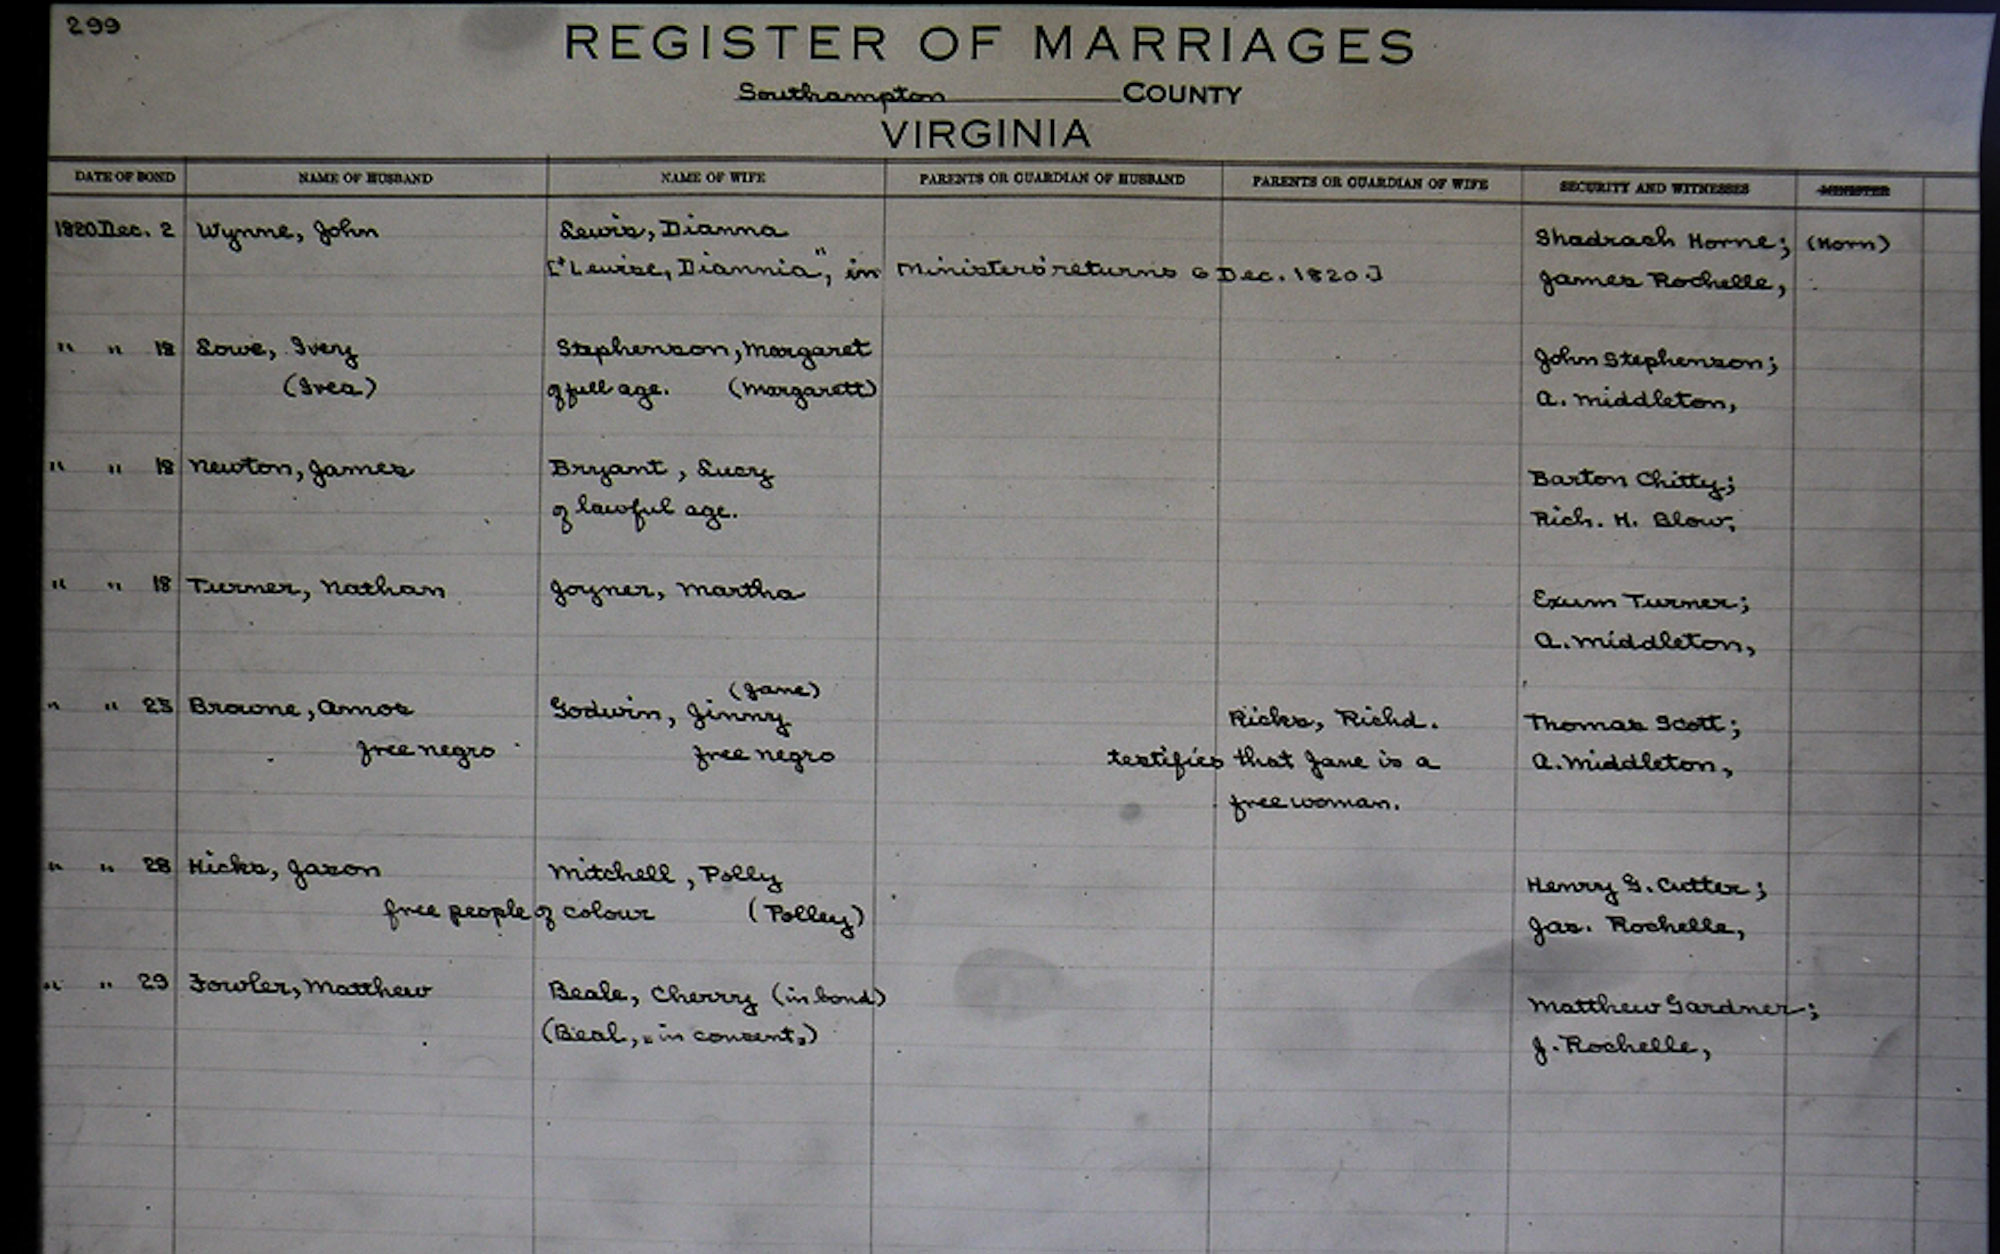 299
REGISTER OF MARRIAGES
Southampton COUNTY
VIRGINIA
DATE OF BOND NAME OF HUSBAND NAME OF WIFE PARENTS OR GUARDIAN OF HUSBAND PARENTS OR GUARDIAN OF WIFE SECURITY AND WITNESSES MINISTER
1820 Dec. 2 Wynne, John Lewis, Dianna Shadrach Horne; (Horn)
["Lewise, Diannia", in Ministers' returns 6 Dec. 1820.] James Rochelle,
" " 18 Lowe, Ivery Stephenson, Margaret John Stephenson;
(Ivea) of full age. (Margarett) A. Middleton,
" " 18 Newton, James Bryant, Lucy Barton Chitty;
of lawful age. Rich. H. Blow,
" " 18 Turner, Nathan Joyner, Martha Exum Turner;
A. Middleton,
(Jane)
" " 23 Browne, Amos Godwin, Jinny Ricks, Richd. Thomas Scott;
free negro free negro testifies that Jane is a A. Middleton,
free woman.
" " 28 Hicks, Jason Mitchell, Polly Henry G. Cutter;
free people of colour (Polley) Jas. Rochelle,
" " 29 Fowler, Matthew Beale, Cherry (in bond) Matthew Gardner;
(Beal, "in consent") J. Rochelle,